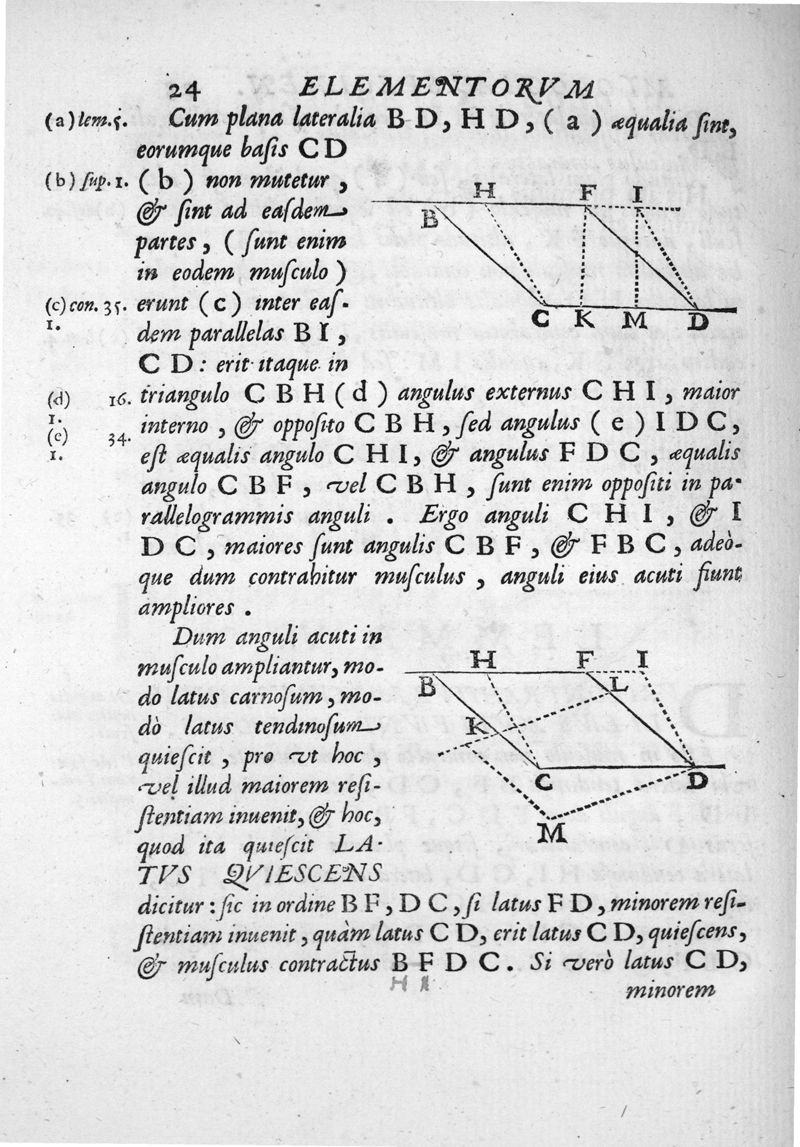 24 ELEMENTORVM
(a) lem. 5. Cum plana lateralia B D, H D, ( a ) æqualia ſint,
eorumque baſis C D
(b) ſup. 1. ( b ) non mutetur ,
& ſint ad eaſdem
partes , ( ſunt enim
in eodem muſculo )
(c) con. 35. 1. erunt ( c ) inter eaſ-
dem parallelas B I ,
C D : erit itaque in
H F I
B
C K M D
(d) 16. 1. triangulo C B H ( d ) angulus externus C H I , maior
(e) 34. 1. interno , & oppoſito C B H , ſed angulus ( e ) I D C,
eſt æqualis angulo C H I, & angulus F D C , æqualis
angulo C B F , vel C B H , ſunt enim oppoſiti in pa-
rallelogrammis anguli . Ergo anguli C H I , & I
D C , maiores ſunt angulis C B F , & F B C , adeò-
que dum contrahitur muſculus , anguli eius acuti fiunt
ampliores .
Dum anguli acuti in
muſculo ampliantur, mo-
do latus carnoſum , mo-
dò latus tendinoſum
quieſcit , pro vt hoc ,
vel illud maiorem reſi-
ſtentiam inuenit, & hoc,
quod ita quieſcit LA-
TVS QVIESCENS
H F I
B L
K
C D
M
dicitur : ſic in ordine B F , D C , ſi latus F D , minorem reſi-
ſtentiam inuenit , quàm latus C D, erit latus C D, quieſcens,
& muſculus contractus B F D C . Si verò latus C D,
H I
minorem